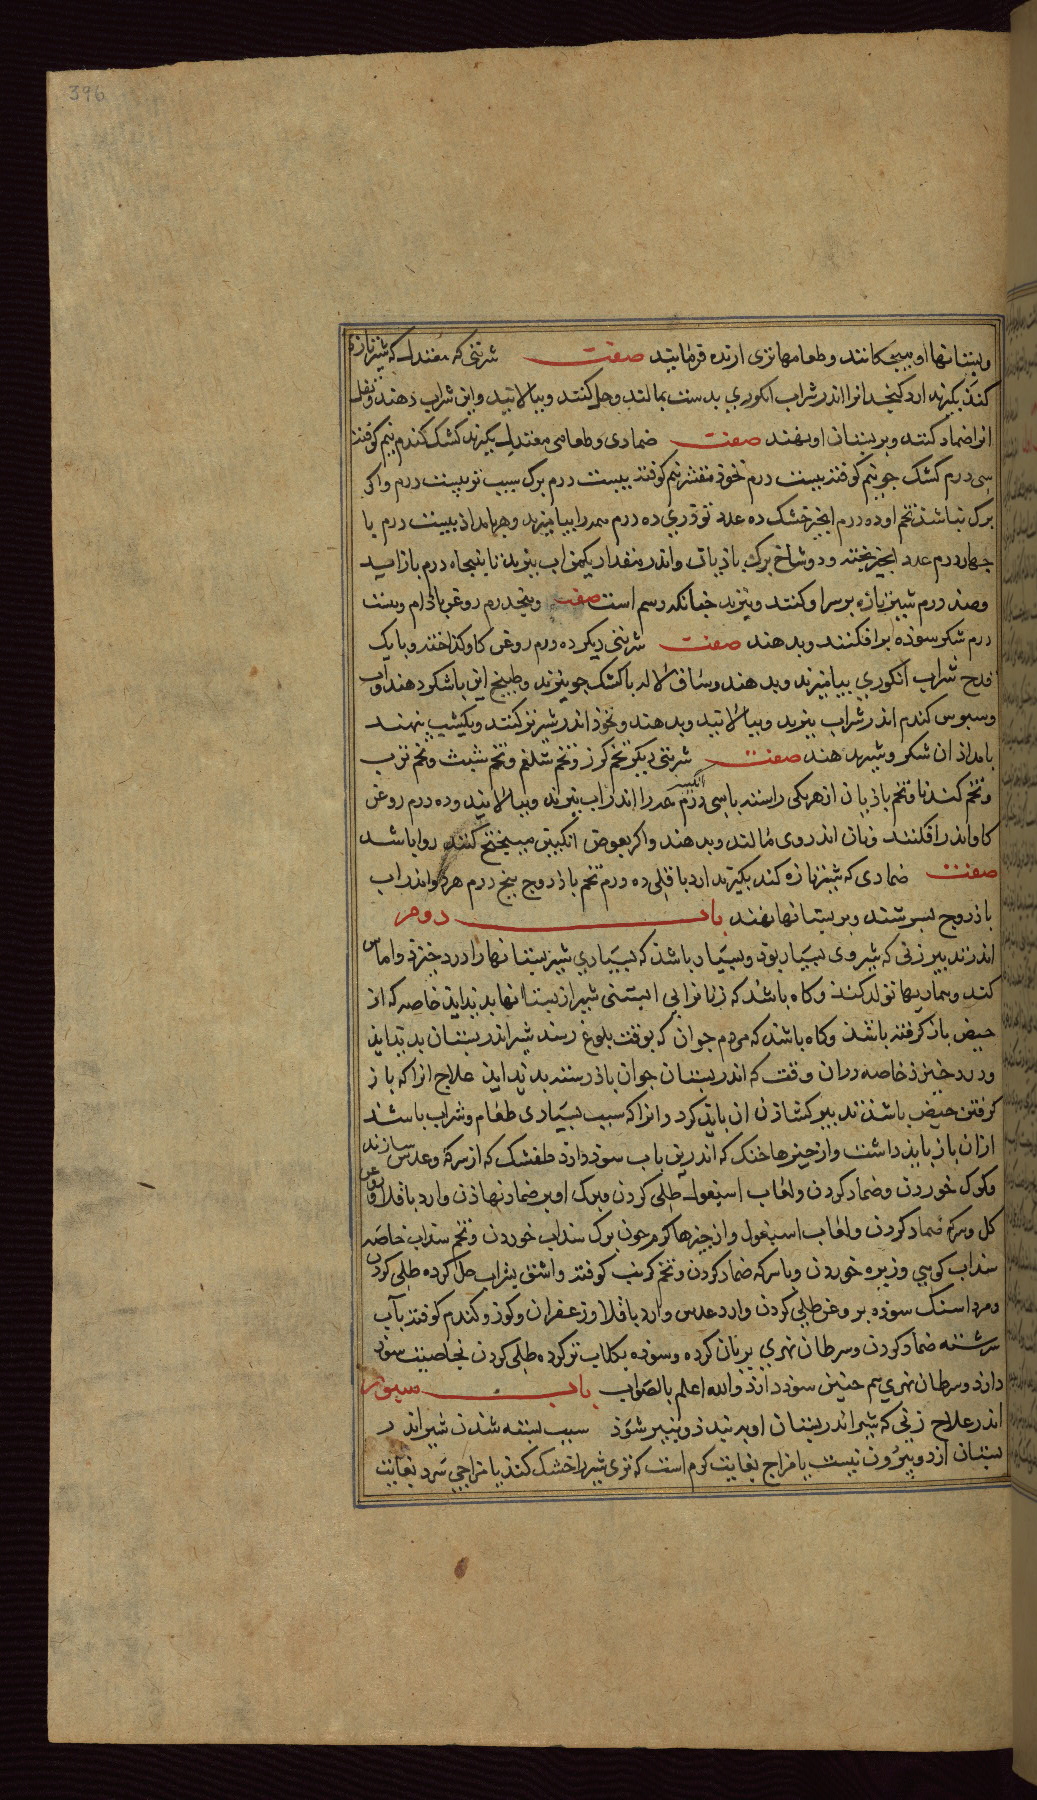 396
و پستانها او بیجکانند و طعامها تری ارنده فرمایند صفت شربتی که معتدل که شیر تازه
کند بگیرند ارد کنجد انرا اندر شراب انکوری بدست بمالند و حل کنند و بپالایند و این شراب دهند و ثفل
انرا ضماد کنند و بر پستان او نهند صفت ضمادی و طعامی معتدل بگیرند کشک کندم نیم کوفته
سی درم کشک جو نیم کوفته بیست درم نخود مقشر نیم کوفته بیست درم برک سیب تو بیست درم و اکر
برک نباشد تخم او ده درم انجیر خشک ده عدد تودری ده درم همه را بیامیزند و هر بامداد بیست درم با
جهار درم عدد انجیر بخته و دو شاخ برک باذیان و اندر مقدار یکمن اب بپزند تا بنجاه درم بازاید
و صد درم شیر تازه بر سر او کنند و بپزند جنانکه رسم است صفت و بنجدرم روغن باذام و بست
درم شکر سوذه بر افکنند و بدهند صفت شربتی دیکر ده درم روغن کاو کذاخته و با یک
قدح شراب انکوری بیامیزند و بدهند و ساق لاله با کشک جو بپزند و طبیخ این با شکر دهند و اب
و سبوس کندم اندر شراب بپزند و بپالایند و بدهند و نخوذ اندر شیر تر کنند و یکشب بنهند
بامداذ ان شکر و شیر بدهند صفت شربتی دیکر تخم کرز و تخم شلغم و تخم شبث و تخم ترب
و تخم کندنا و تخم باذیان از هر یکی راستد با سی درم انکبین همه را اندر اب بپزند و بپالایند و ده درم روغن
کاو اندر افکنند و نان اندر وی مالند و بدهند و اکر بعوض انکبین میبختج کنند روا باشد
صفت ضمادی که شیر تازه کند بکیرند ارد باقلی ده درم تخم باذروج بنج درم هر دو اندر اب
باذروج بسرشند و بر پستانها نهند باب دوم
اندر تدبیر زنی که شیر وی بسیار بوذ و بسیار باشذ که بسیاری شیر پستانها را درد خیزذ و اماس
کند و بیماریها تولد کند و کاه باشد که زنانرا بی ابستنی شیر از پستانها بدیذ ایذ خاصه که از
حیض باز کرفته باشذ و کاه باشذ که مردم جوان که بوقت بلوغ رسد شیر اندر پستان بدیذ ایذ
و درد خیزذ خاصه دران وقت که اندر پستان جوان باذ رسته بدیذ ایذ علاج انرا که باز
کرفتن حیض باشذ تدبیر کشاذن ان بایذ کرد و انرا که سبب بسیاری طعام و شراب باشد
ازان باز بایذ داشت و از جیزها خنک که اندرین باب سوذ دارذ طفشک که از سرکه و عدس سازند
و کوک خوردن و ضماد کردن و لعاب اسبغول طلی کردن و برک او بر ضماد نهاذن و ارد باقلا و روغن
کل و سرکه ضماد کردن و لعاب اسبغول و از جیزها کرم جون برک سذاب خوردن و تخم سذاب خاصه
سذاب کوهی و زیره خوردن و با سرکه ضماد کردن و تخم کرنب کوفته و اشق بشراب حل کرده طلی کردن
و مرداسنک سوذه بروغن طلی کردن و ارد عدس و ارد باقلا و زعفران و کوز و کندم کوفته باب
سرشته ضماد کردن و سرطان نهری بریان کرده و سوذه بکلاب تر کرده طلی کردن بخاصیت سوذ
دارذ و سرطان نهری هم جنین سوذ دارذ والله اعلم بالصواب باب سیوم
اندر علاج زنی که شیر اندر پستان او ببندذ و بنیر شوذ سبب بسته شدن شیر اندر
پستان از دو بیرون نیست یا مزاج بغایت کرم است که تری شیر را خشک کند یا مزاجی سرد بغایت